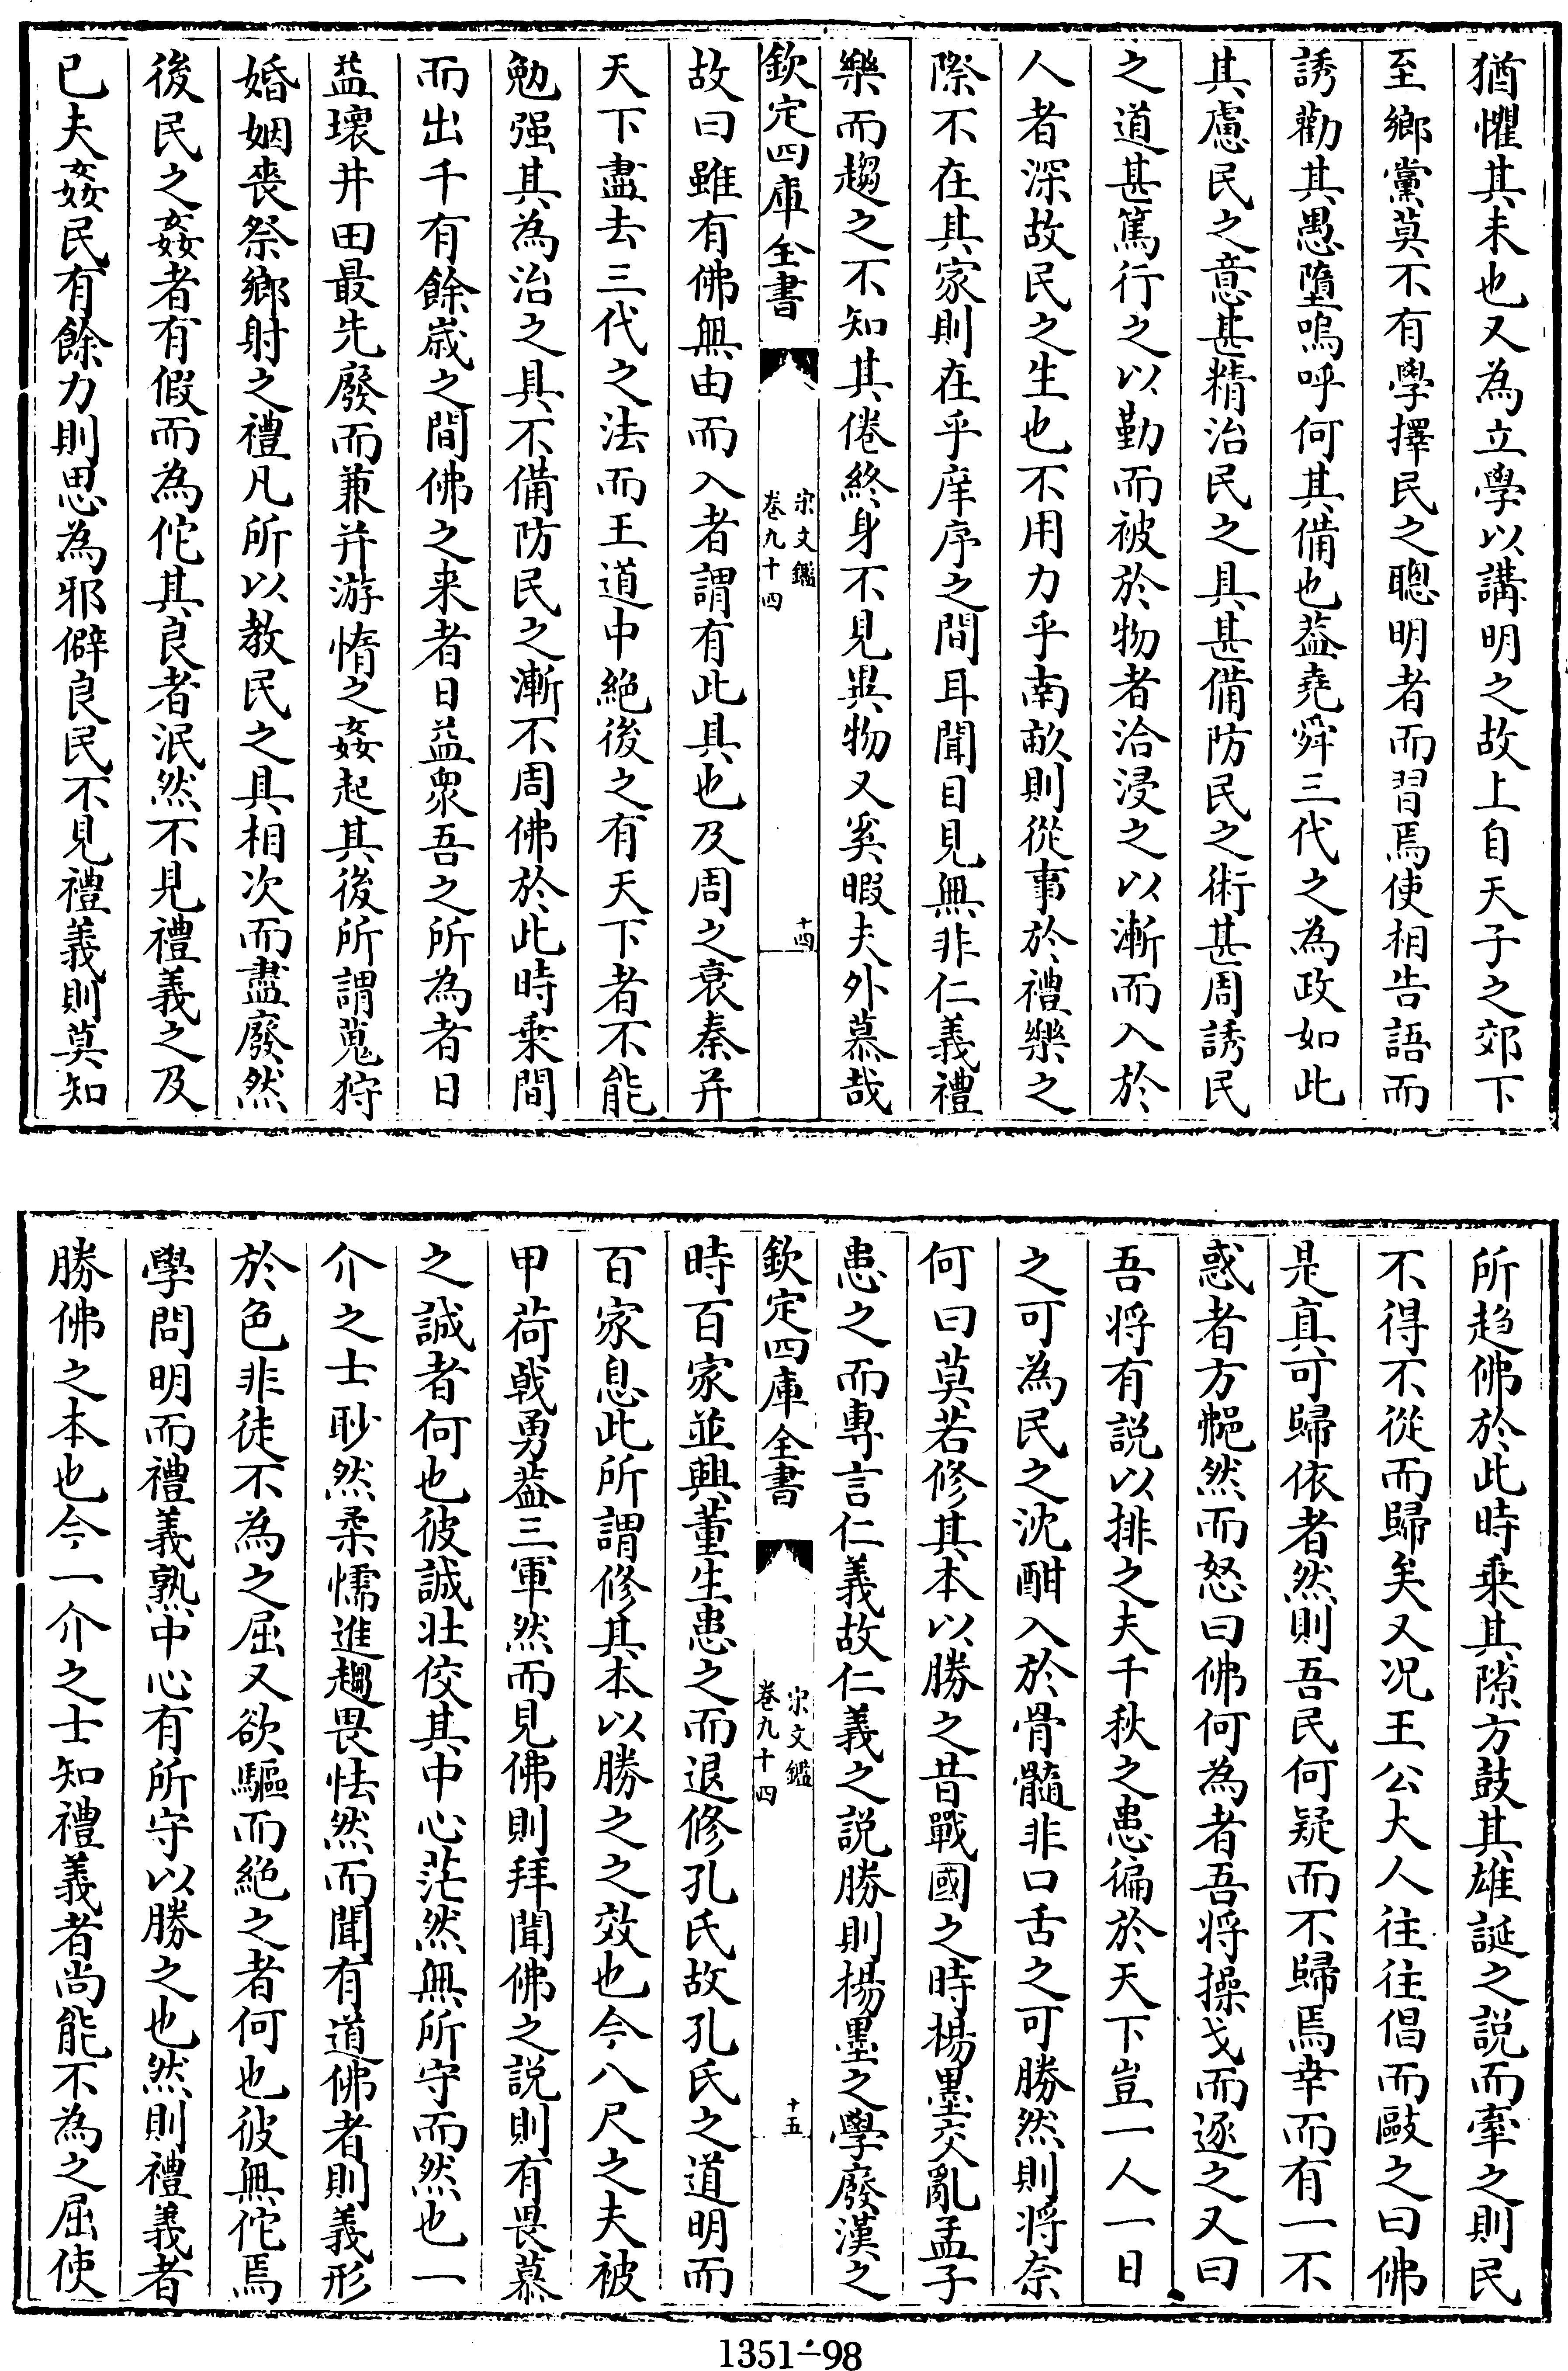 猶懼其未也又為立學以講明之故上自天子之郊下
至鄉黨莫不有學擇民之聰明者而習焉使相告語而
誘勸其愚墮嗚呼何其備也葢堯舜三代之為政如此
其慮民之意甚精治民之具甚備防民之術甚周誘民
之道甚篤行之以勤而被於物者洽浸之以漸而入於
人者深故民之生也不用力乎南畝則從事於禮樂之
際不在其家則在乎庠序之間耳聞目見無非仁義禮
樂而趨之不知其倦終身不見異物又奚暇夫外慕哉
欽定四庫全書
宋文鑑
卷九十四
十四
故曰雖有佛無由而入者謂有此具也及周之衰秦并
天下盡去三代之法而王道中絶後之有天下者不能
勉强其為治之具不備防民之漸不周佛於此時乗間
而出千有餘歲之間佛之来者日益衆吾之所為者日
益壞井田最先廢而兼并游惰之姦起其後所謂蒐狩
婚姻喪祭鄉射之禮凡所以教民之具相次而盡廢然
後民之姦者有假而為佗其良者泯然不見禮義之及
已夫姦民有餘力則思為邪僻良民不見禮義則莫知
所趋佛於此時乗其隙方鼓其雄誕之説而牽之則民
不得不從而歸矣又况王公大人往往倡而敺之曰佛
是真可歸依者然則吾民何疑而不歸焉幸而有一不
惑者方艴然而怒曰佛何為者吾将操戈而逐之又曰
吾将有説以排之夫千秋之患徧於天下豈一人一日
之可為民之沈酣入於骨髓非口舌之可勝然則将奈
何曰莫若修其本以勝之昔戰國之時楊墨交亂孟子
患之而専言仁義故仁義之説勝則楊墨之學廢漢之
欽定四庫全書
宋文鑑
卷九十四
十五
時百家並興董生患之而退修孔氏故孔氏之道明而
百家息此所謂修其本以勝之之效也今八尺之夫被
甲荷戟勇葢三軍然而見佛則拜聞佛之説則有畏慕
之誠者何也彼誠壮佼其中心茫然無所守而然也一
介之士眇然柔懦進趨畏怯然而聞有道佛者則義形
於色非徒不為之屈又欲驅而絶之者何也彼無佗焉
學問明而禮義熟中心有所守以勝之也然則禮義者
勝佛之本也今一介之士知禮義者尚能不為之屈使
1351-98